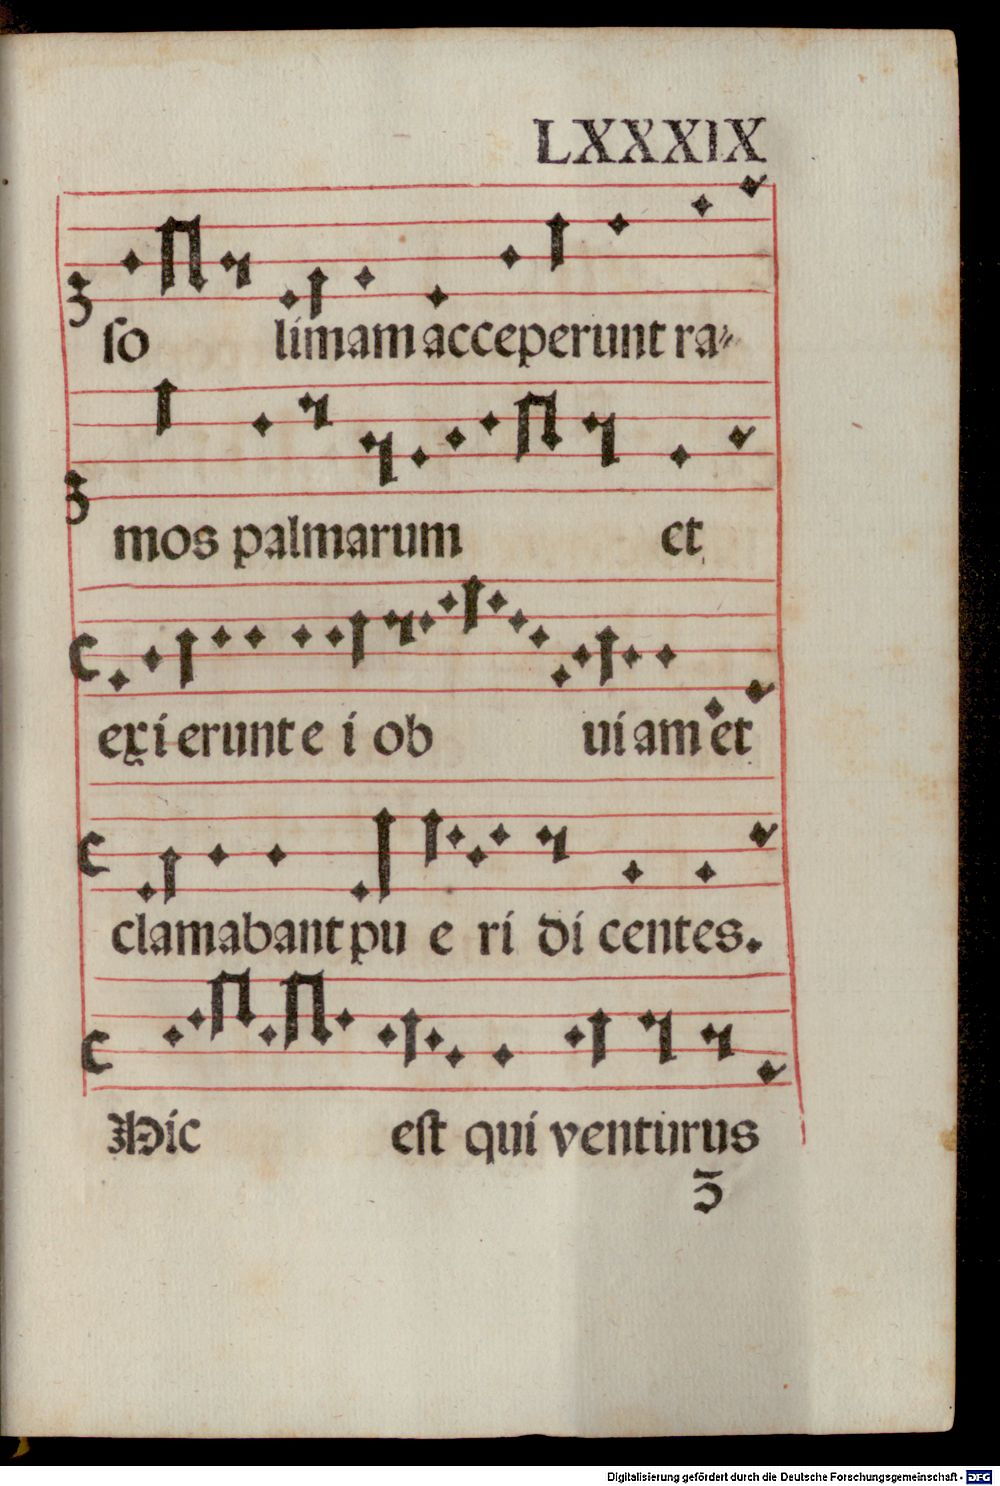 LXXXIX
so limam acceperunt ra-
mos palmarum et
exierunt e i ob uiam et
clamabant pu e ri di centes.
Hic est qui venturus
Digitalisierung gefördert durch die Deutsche Forschungsgemeinschaft - DFG